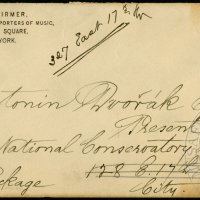 IRMER,
PORTERS OF MUSIC,
SQUARE,
YORK.
327 East 17
tonin Dvořák
Present
National Conservatory
128 E. 17
kage
City.